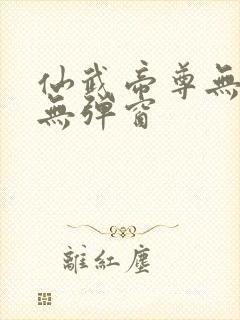 仙武帝尊無
無彈窗
離紅塵